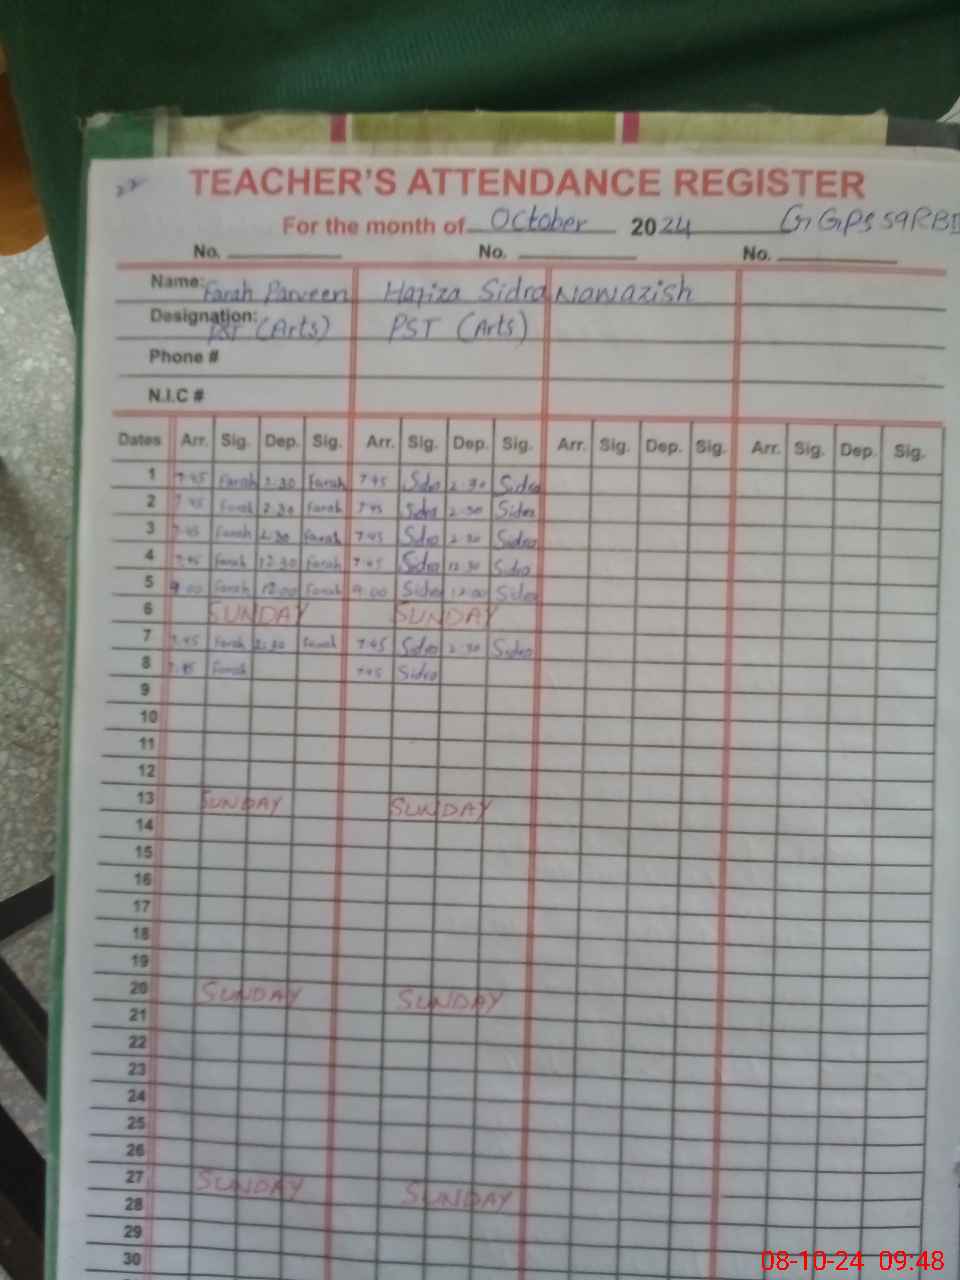 22
TEACHER'S ATTENDANCE REGISTER
For the month of October 2024 GGPS 59RB
No. No. No.
Name: Farah Parveen Hafiza Sidra Nowazish
Designation: PST (Arts) PST (Arts)
Phone #
N.I.C #
Dates Arr. Sig. Dep. Sig. Arr. Sig. Dep. Sig. Arr. Sig. Dep. Sig. Arr. Sig. Dep. Sig.
1 7.45 Farah 2.30 Farah 7.45 Sidra 2.30 Sidra
2 7.45 Farah 2.30 Farah 7.45 Sidra 2.30 Sidra
3 7.45 Farah 2.30 Farah 7.45 Sidra 2.30 Sidra
4 7.45 Farah 12.30 Farah 7.45 Sidra 12.30 Sidra
5 9.00 Farah 12.00 Farah 9.00 Sidra 12.00 Sidra
6 SUNDAY SUNDAY
7 7.45 Farah 2.30 Farah 7.45 Sidra 2.30 Sidra
8 7.45 Farah 7.45 Sidra
9
10
11
12
13 SUNDAY SUNDAY
14
15
16
17
18
19
20 SUNDAY SUNDAY
21
22
23
24
25
26
27 SUNDAY SUNDAY
28
29
30
08-10-24 09:48